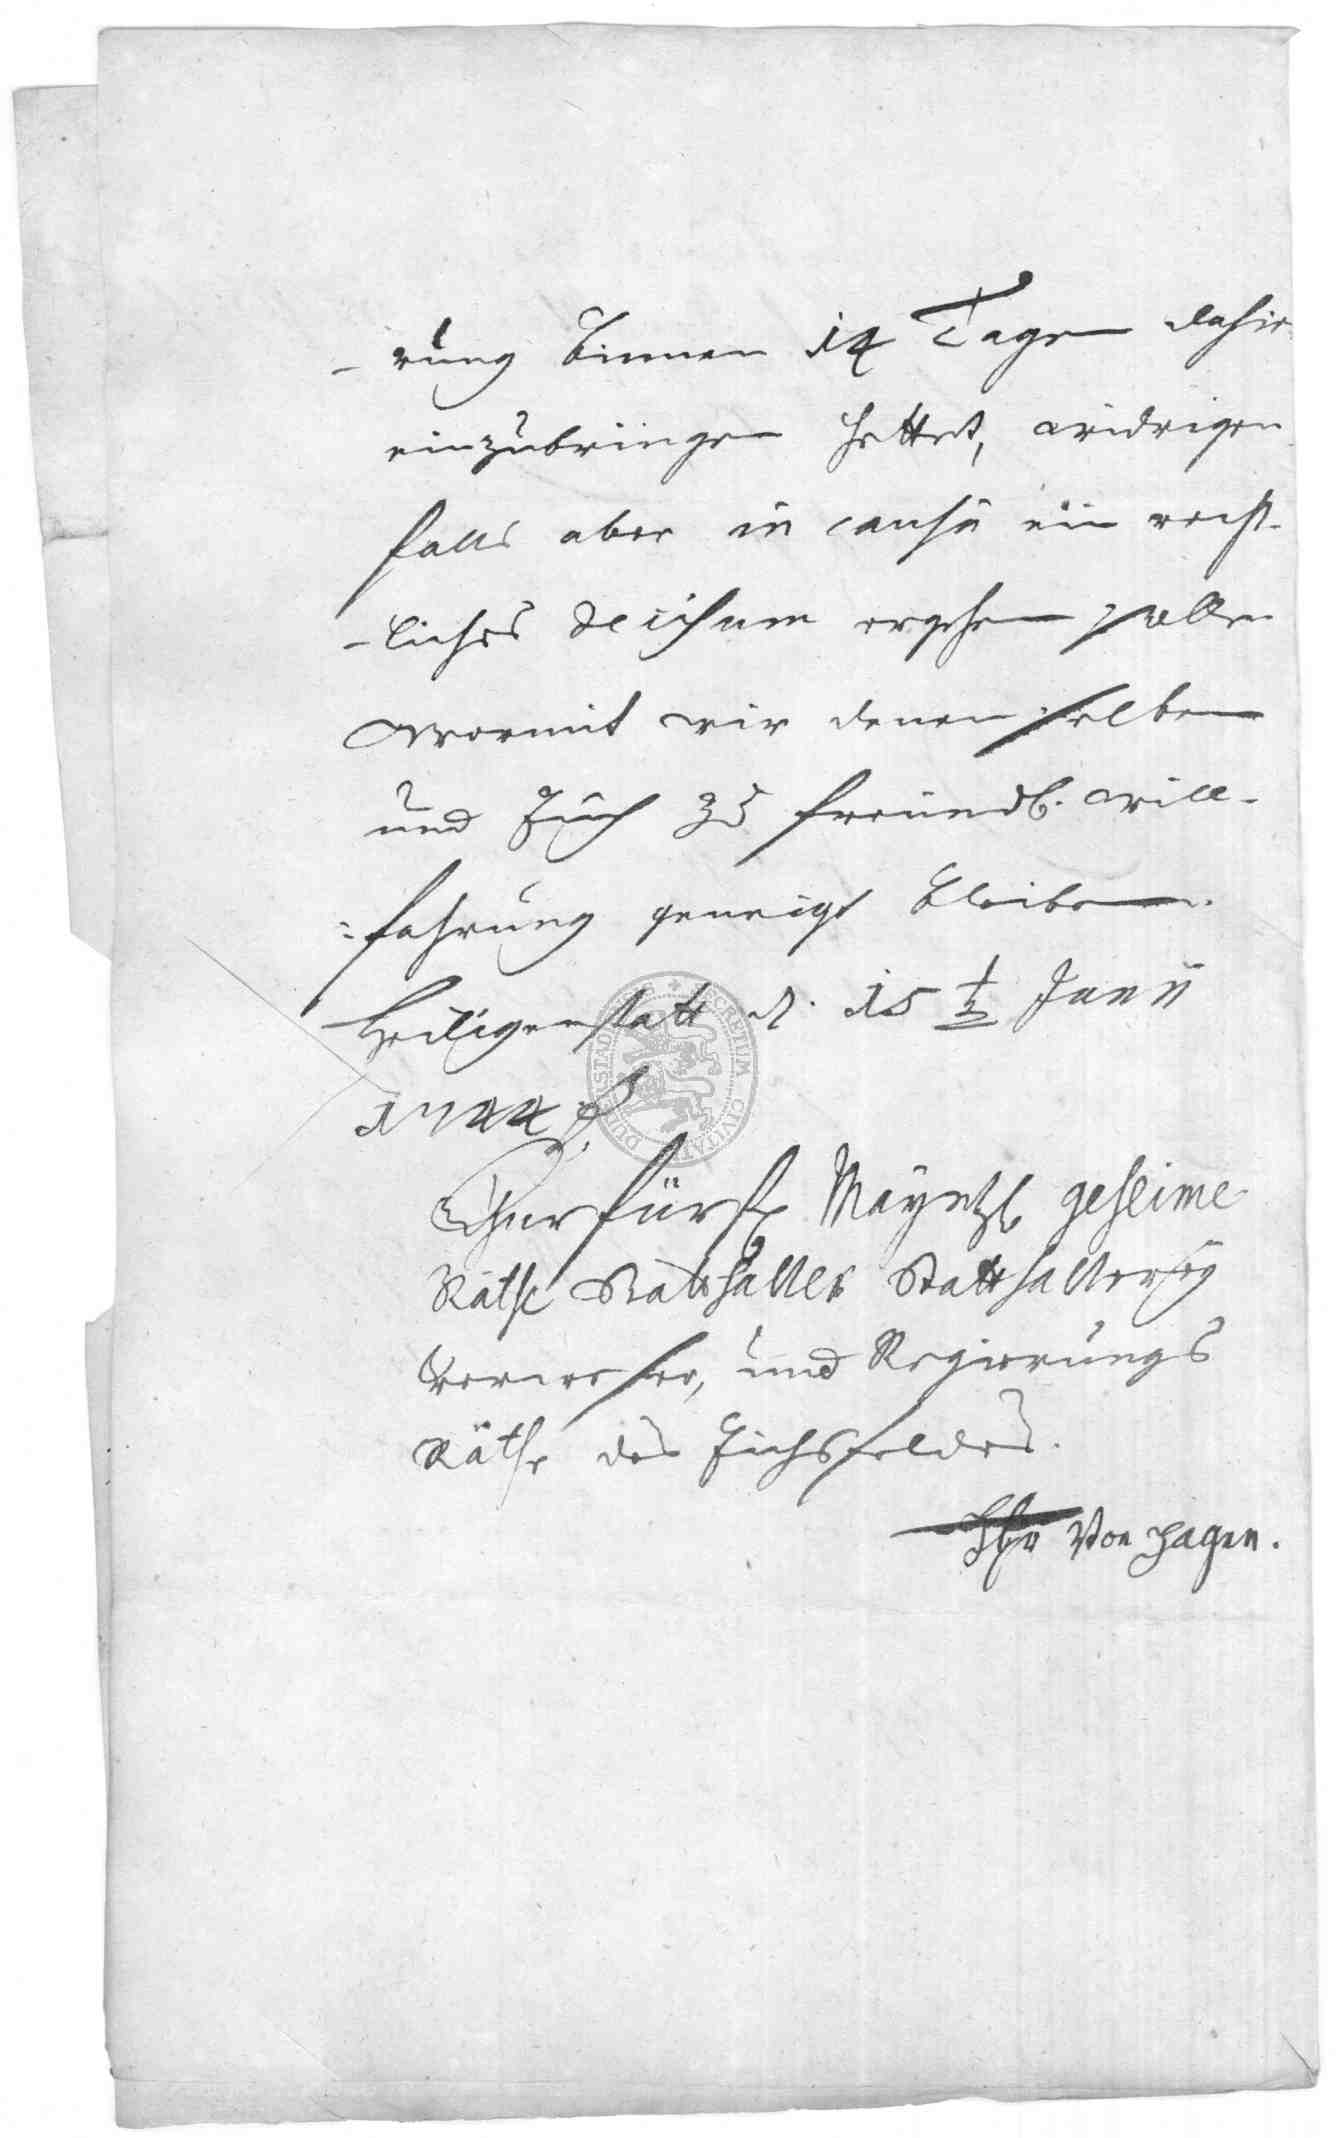 -rung binnen 14 Tagen dahier
einzubringen hettet, widrigen
falls aber in causa ein recht-
-liches decisum ergehen solle
Wormit wir denenselben
und Euch zu freundl. will-
:fahrung geneigt bleiben.
Heiligenstatt d. 15 Junii
1744
Churfürstl Mayntzl geheime
Räthe Statthalter Statthalterey
Verweser, und Regierungs
Räthe des Eichsfeldes.
Von Hagen.